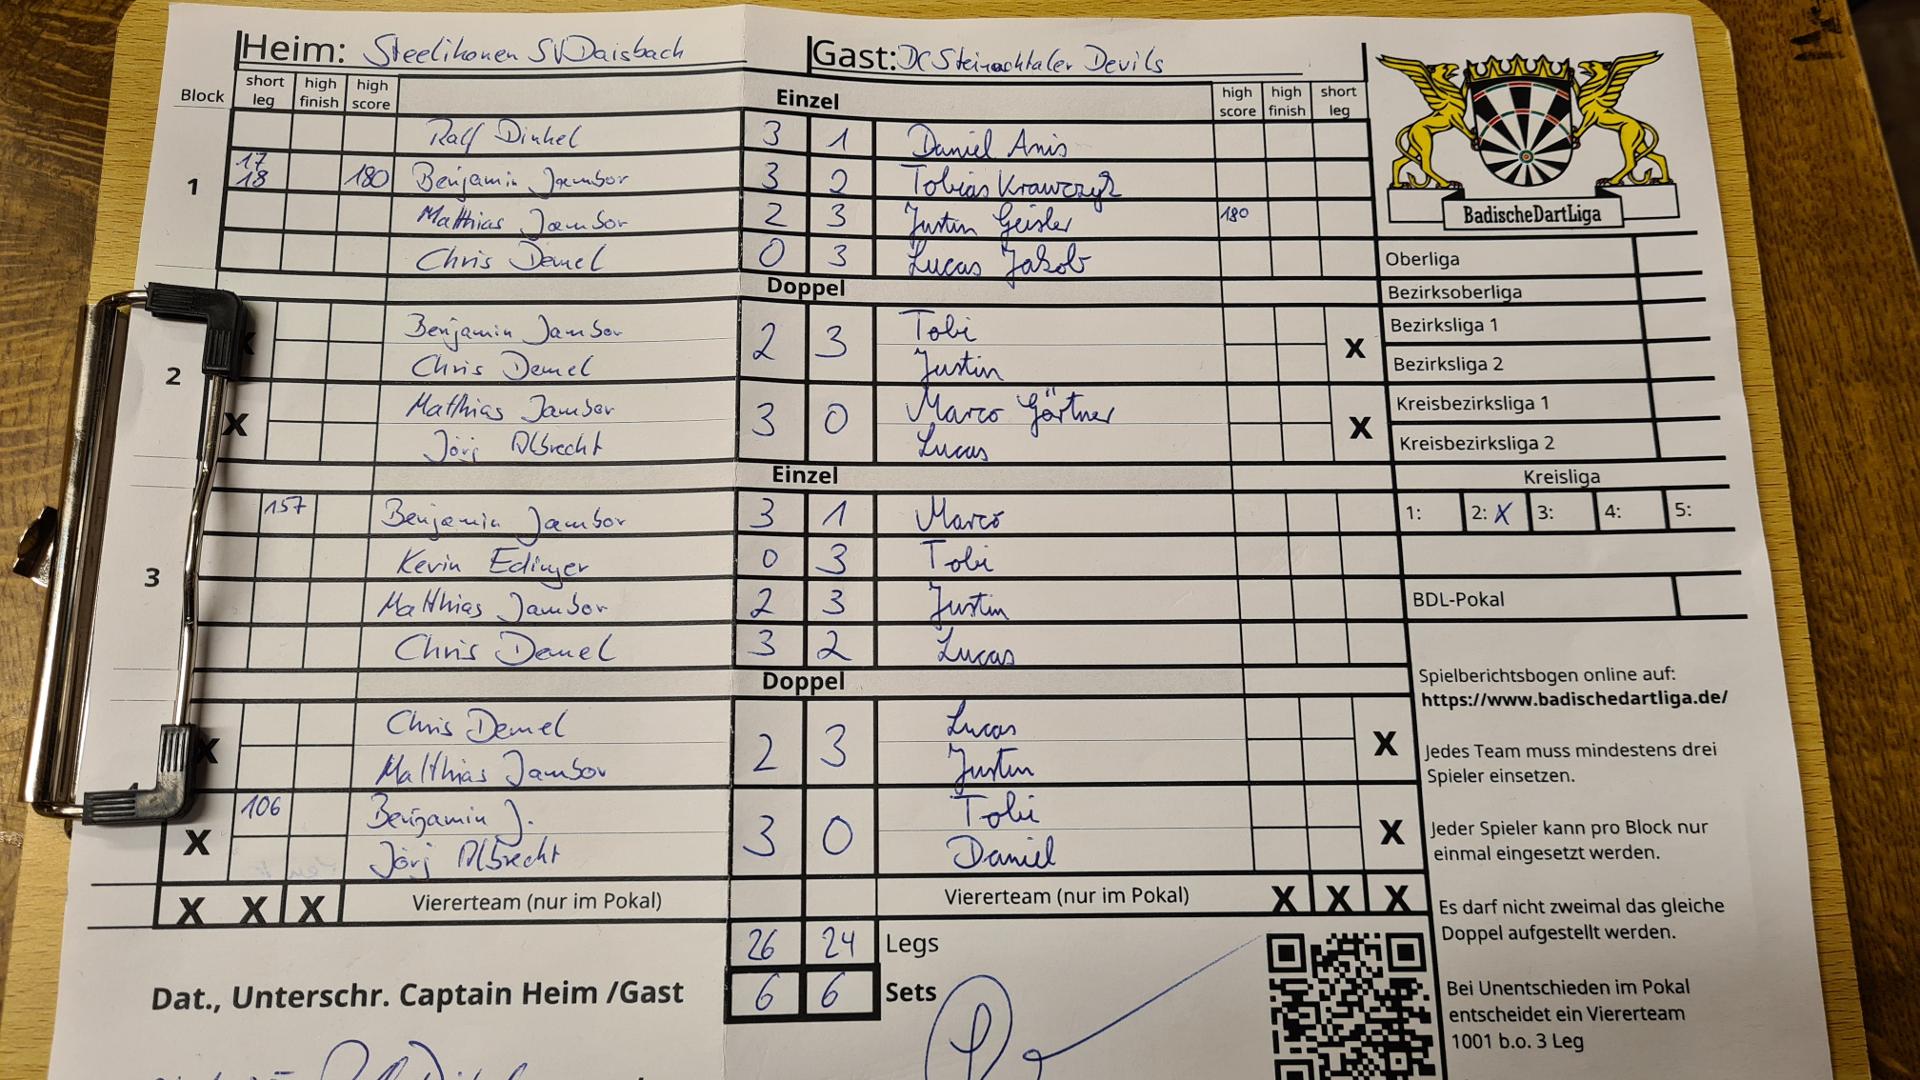 Heim: Steelikonen SV Daisbach Gast: DC Steinachtaler Devils
Block short leg high finish high score Einzel high score high finish short leg
Ralf Dinkel 3 1 Daniel Anis
1 17 18 180 Benjamin Jambor 3 2 Tobias Krawczyk
Matthias Jambor 2 3 Justin Geisler 180
Chris Demel 0 3 Lucas Jakob
Doppel
2 X Benjamin Jambor 2 3 Tobi X
Chris Demel Justin
X Matthias Jambor 3 0 Marco Gärtner X
Jörj Albrecht Lucas
Einzel
3 157 Benjamin Jambor 3 1 Marco
Kevin Edinger 0 3 Tobi
Matthias Jambor 2 3 Justin
Chris Demel 3 2 Lucas
Doppel
X Chris Demel 2 3 Lucas X
Matthias Jambor Justin
X 106 Benjamin J. 3 0 Tobi X
Jörj Albrecht Daniel
X X X Viererteam (nur im Pokal) Viererteam (nur im Pokal) X X X
26 24 Legs
6 6 Sets
Dat., Unterschr. Captain Heim /Gast
BadischeDartLiga
Oberliga
Bezirksoberliga
Bezirksliga 1
Bezirksliga 2
Kreisbezirksliga 1
Kreisbezirksliga 2
Kreisliga
1: 2: X 3: 4: 5:
BDL-Pokal
Spielberichtsbogen online auf:
https://www.badischedartliga.de/
Jedes Team muss mindestens drei
Spieler einsetzen.
Jeder Spieler kann pro Block nur
einmal eingesetzt werden.
Es darf nicht zweimal das gleiche
Doppel aufgestellt werden.
Bei Unentschieden im Pokal
entscheidet ein Viererteam
1001 b.o. 3 Leg